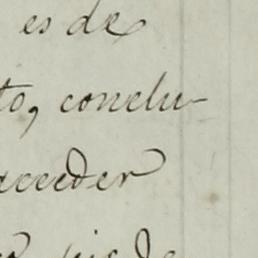 es de
to, conclu-
cceder